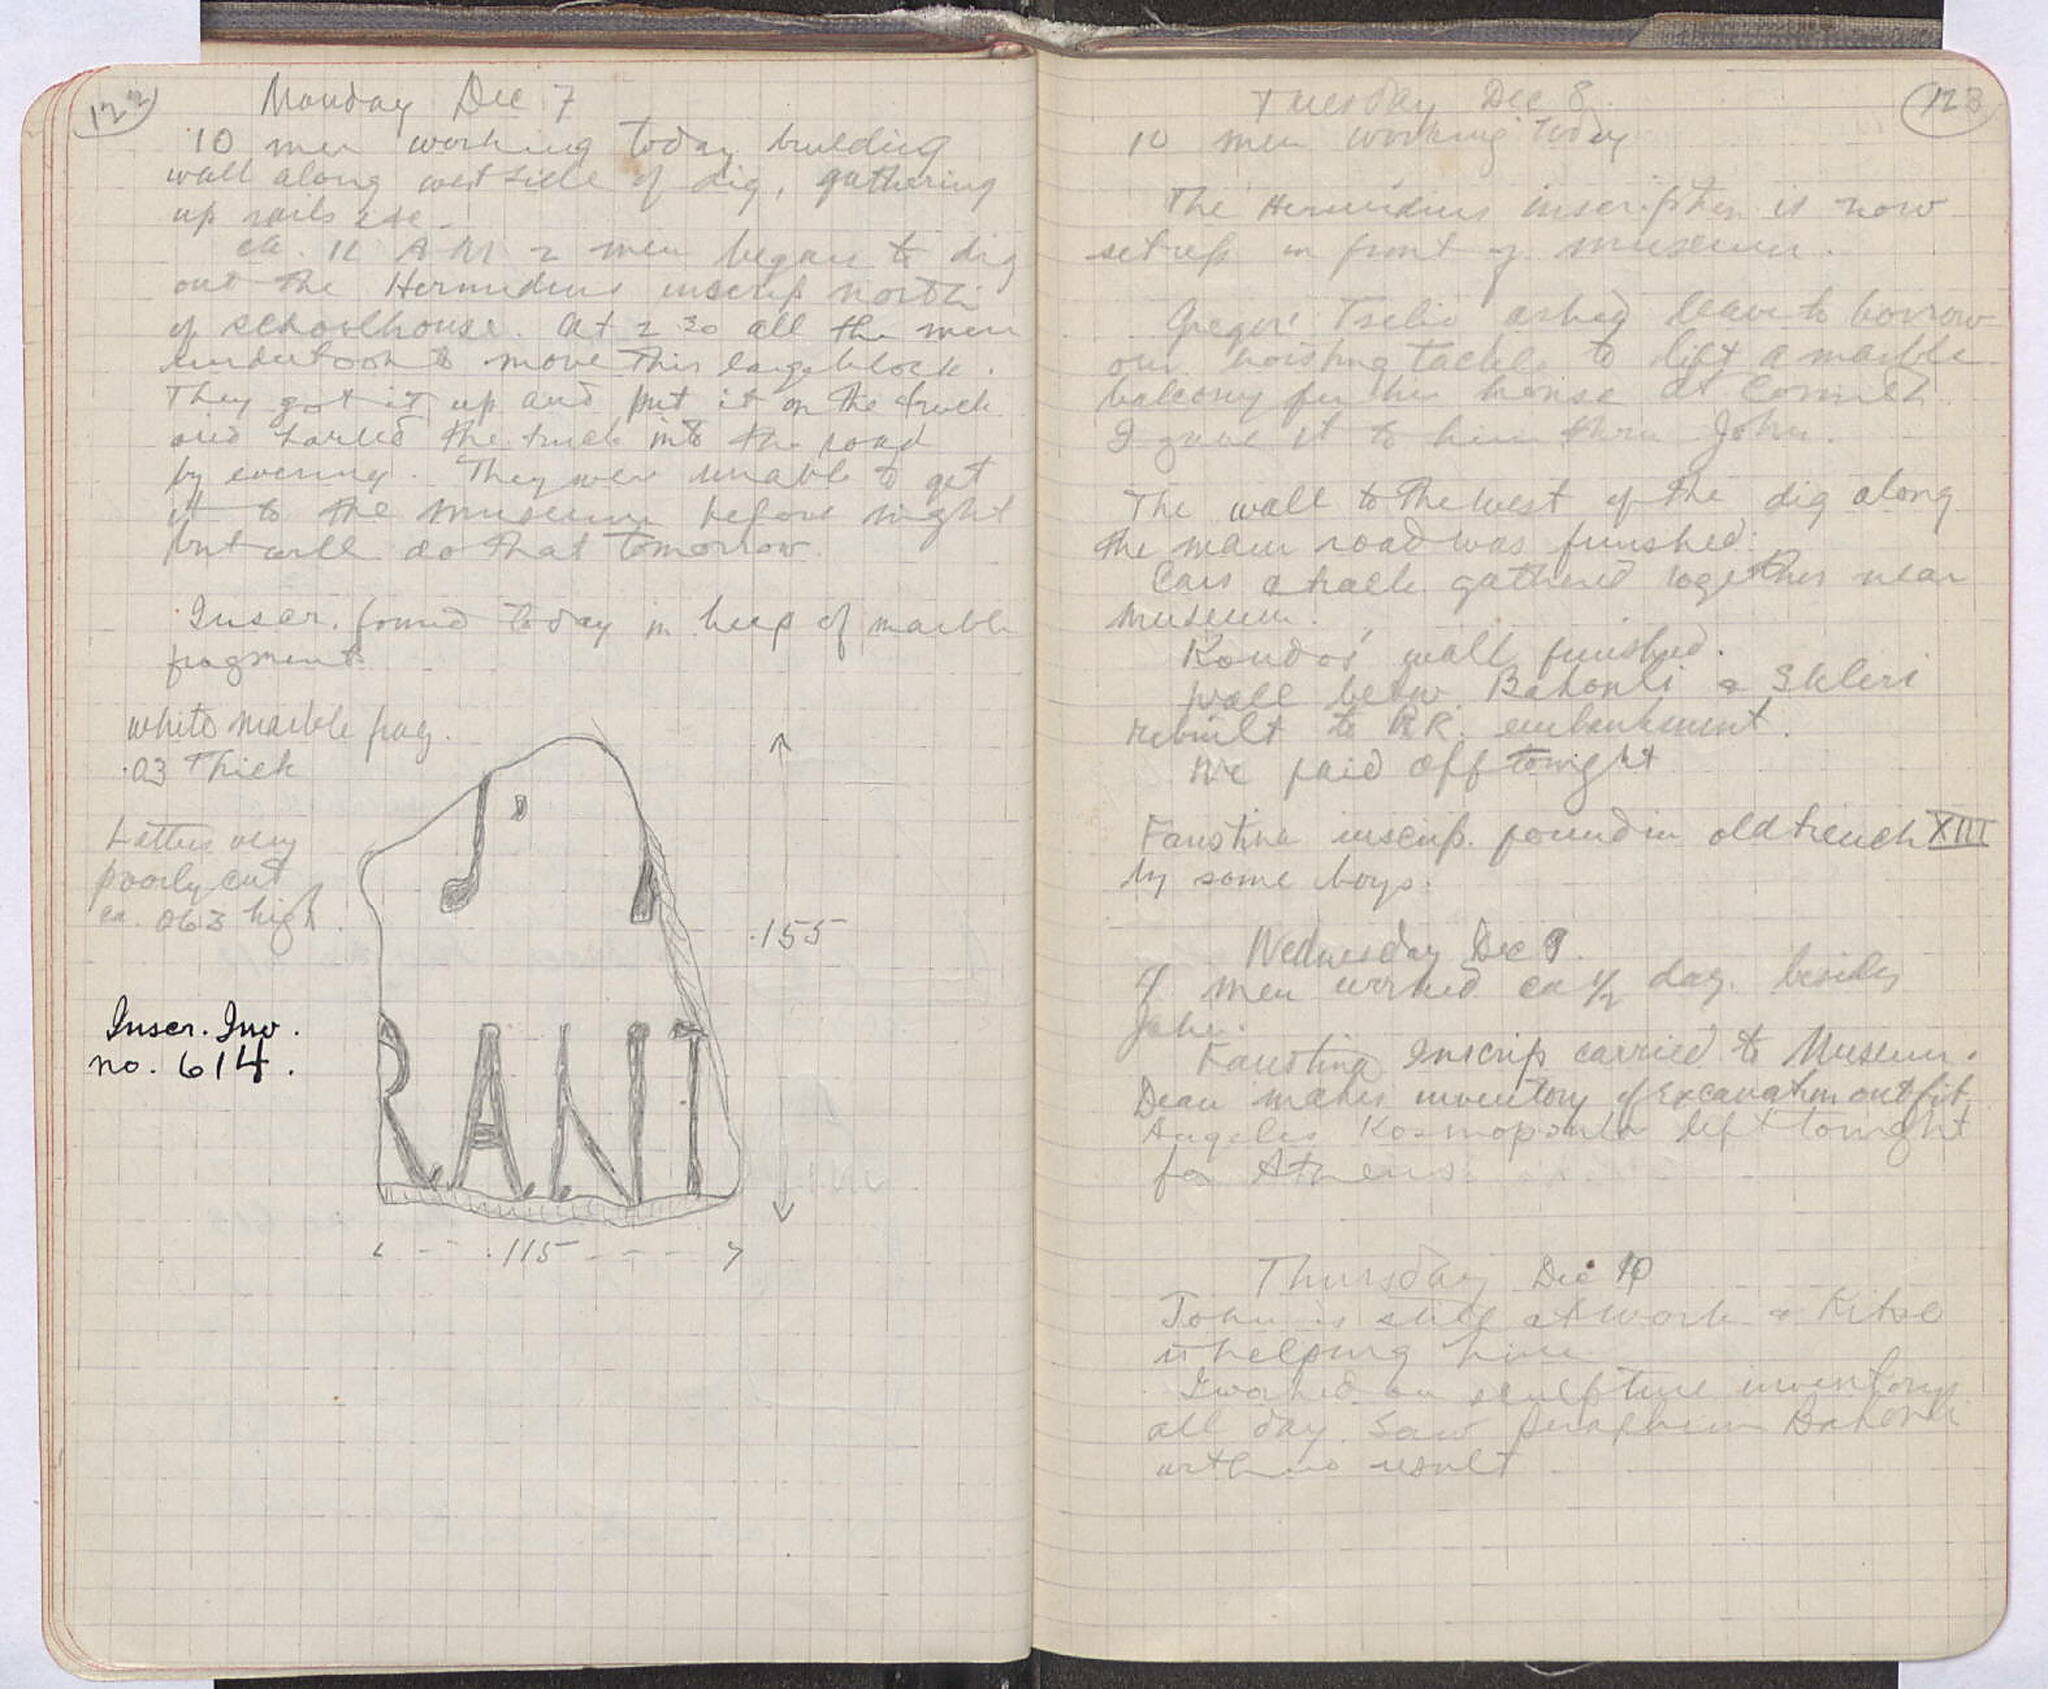 122
Monday Dec 7
10 men working today building
wall along west side of dig, gathering
up rails etc.
ca. 11 AM 2 men began to dig
out the Hermidius inscrip north
of schoolhouse. At 2.30 all the men
undertook to move this large block.
They got it up and put it on the truck
and hauled the truck into the road
by evening. They were unable to get
it to the museum before night
but will do that tomorrow.
Inscr. found today in heap of marble
fragments
white marble frag.
.03 Thick
Letters very
poorly cut
ca. 063 high.
.155
Inscr. Inv.
no. 614.
RANT
.115
123
Tuesday Dec 8.
10 men working today
The Hermidius inscription is now
set up in front of museum.
Gregori Tselio asked leave to borrow
our hoisting tackle to lift a marble
balcony for his house at Corinth
I gave it to him thru John.
The wall to the west of the dig along
the main road was finished.
Cars & track gathered together near
museum.
Kondos' wall finished.
Wall betw. Bakouli & Skleri
rebuilt to RR. embankment.
We paid off tonight
Faustina inscrip. found in old trench XIII
by some boys.
Wednesday Dec 9.
4 men worked ca 1/2 day. besides
John.
Faustina Inscrip carried to Museum.
Dean makes inventory of Excavation outfit
Angelis Kosmopoulo left tonight
for Athens.
Thursday Dec 10
John is still at work & Kitso
is helping him
I worked on sculpture inventory
all day. Saw Seraphim Bakouli
with no result